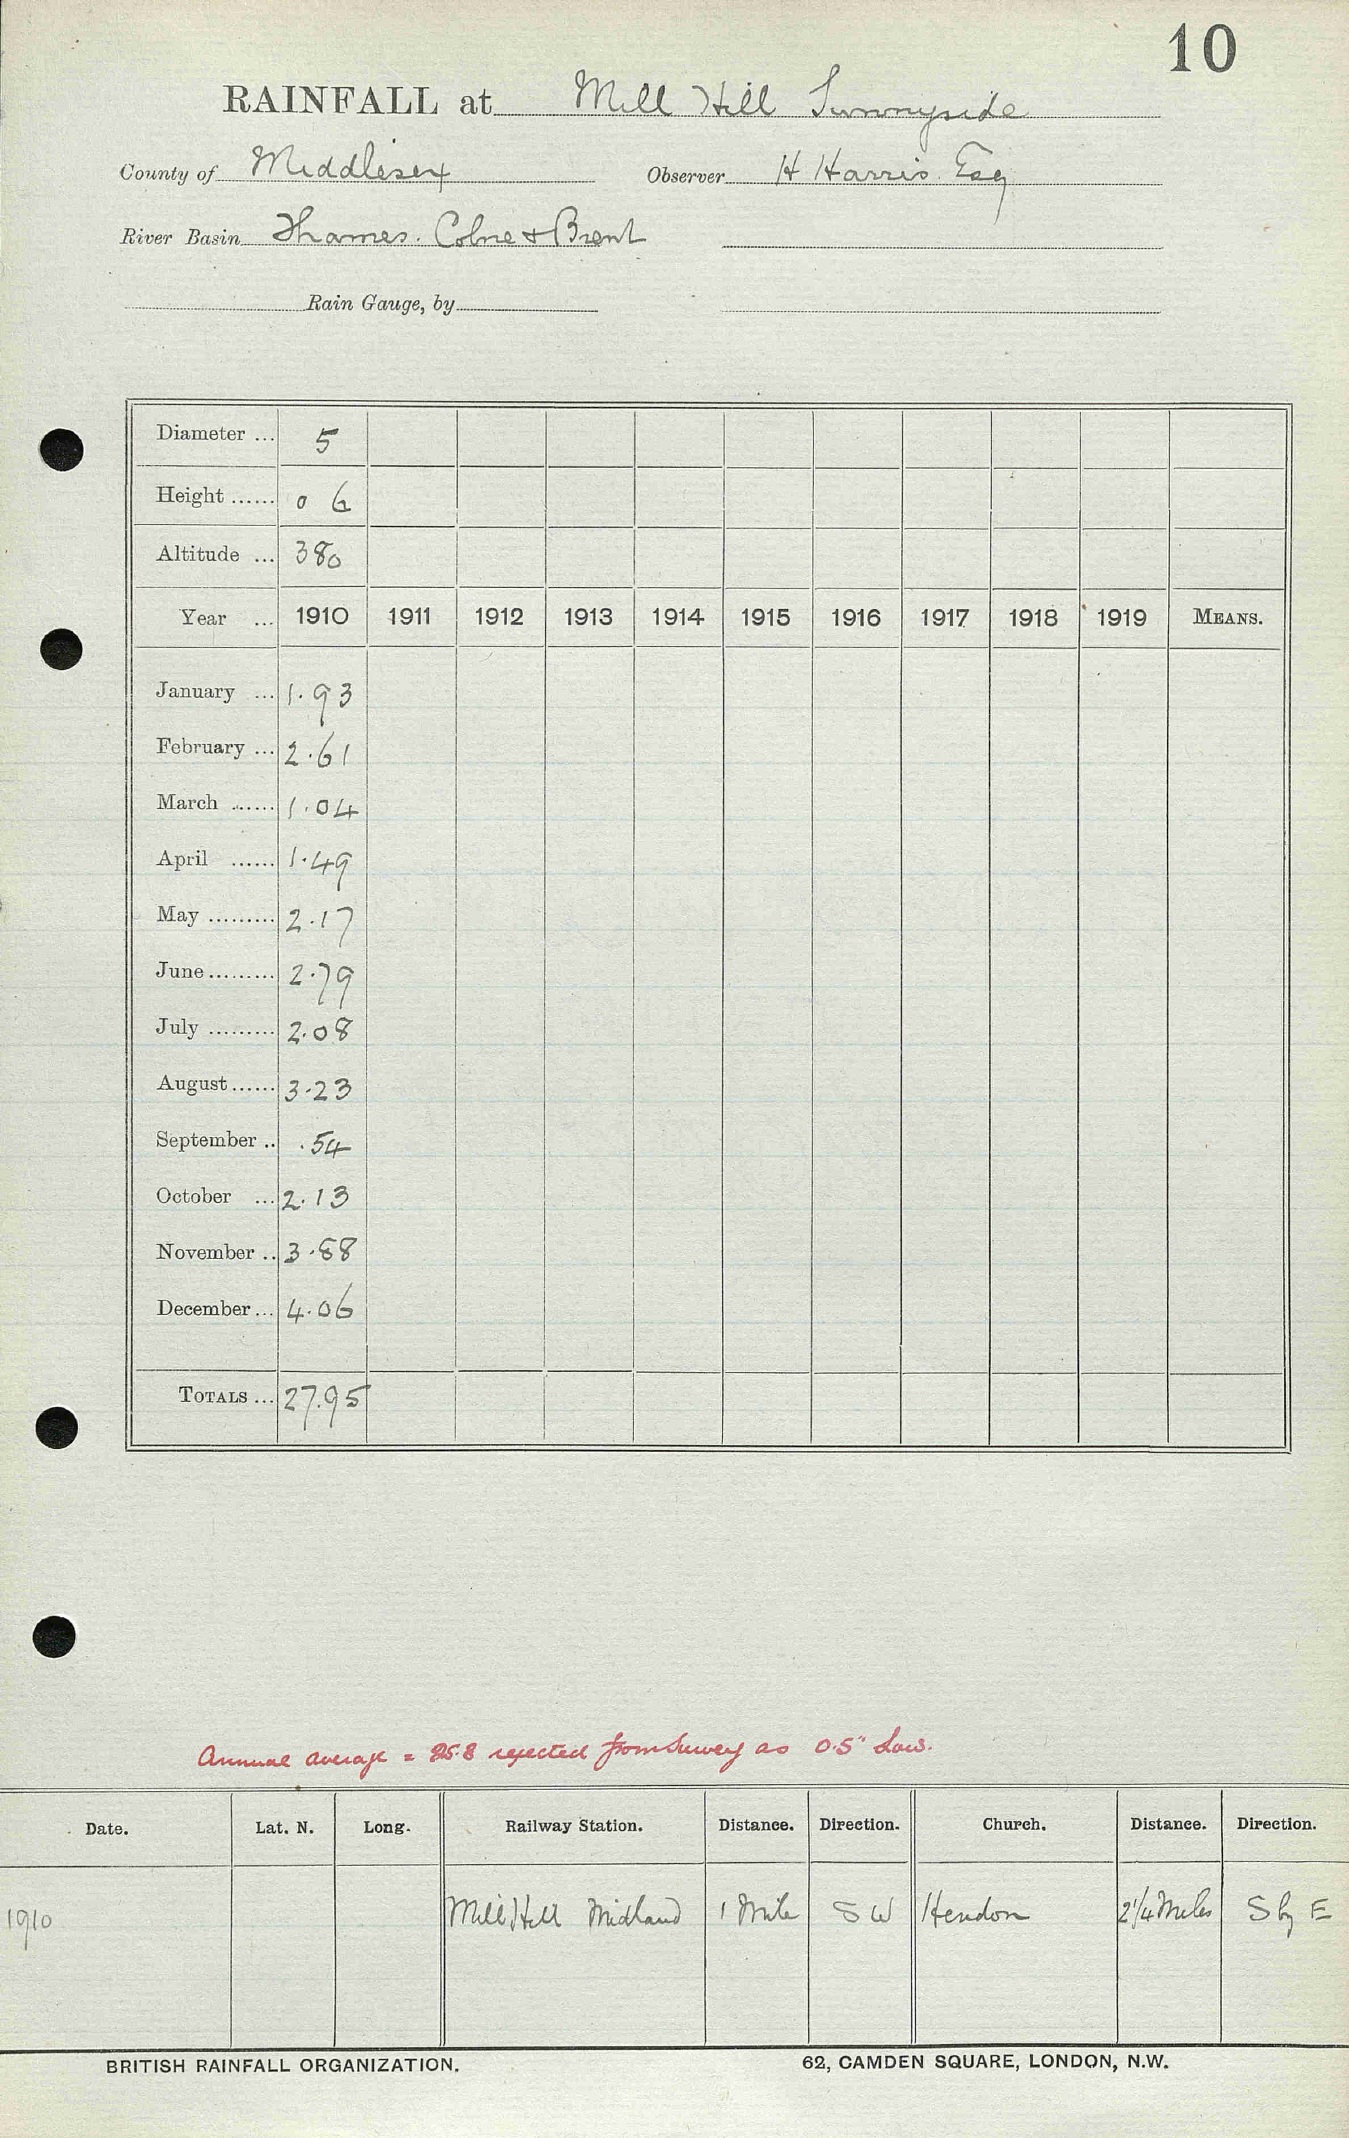 10
RAINFALL at Mill Hill Sunnyside
County of Middlesex Observer H Harris Esq
River Basin Thames. Colne & Brent
Rain Gauge, by
Diameter ... 5
Height ...... 0 6
Altitude ... 380
Year ... 1910 1911 1912 1913 1914 1915 1916 1917 1918 1919 MEANS.
January ... 1.93
February ... 2.61
March ...... 1.04
April ...... 1.49
May ......... 2.17
June ......... 2.79
July ......... 2.08
August ...... 3.23
September .. .54
October ... 2.13
November .. 3.88
December ... 4.06
TOTALS ... 27.95
Annual average = 25.8 rejected from Survey as 0.5" low.
Date. Lat. N. Long. Railway Station. Distance. Direction. Church. Distance. Direction.
1910 Mill Hill Midland 1 Mile SW Hendon 2¼ Miles S by E
BRITISH RAINFALL ORGANIZATION. 62, CAMDEN SQUARE, LONDON, N.W.